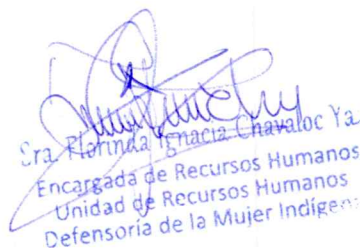 Sra. Florinda Ignacia Chavaloc Ya
Encargada de Recursos Humanos
Unidad de Recursos Humanos
Defensoría de la Mujer Indígena